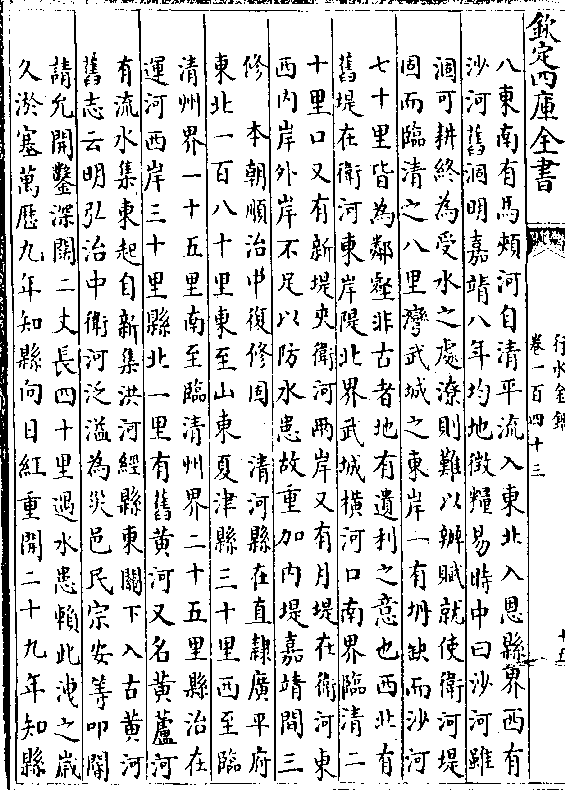 欽定四庫全書
行水金鑑
卷一百四十三
八東南有馬頰河自清平流入東北入恩縣界西有
沙河舊涸明嘉靖八年均地徴糧易時中曰沙河雖
涸可耕終為受水之處潦則難以辦賦就使衛河堤
固而臨清之八里灣武城之東岸一有坍缺而沙河
七十里皆為鄰壑非古者地有遺利之意也西北有
舊堤在衛河東岸隄北界武城橫河口南界臨清二
十里口又有新堤夾衛河兩岸又有月堤在衛河東
西内岸外岸不足以防水患故重加内堤嘉靖間三
修　本朝順治中復修固　清河縣在直隸廣平府
東北一百八十里東至山東夏津縣三十里西至臨
清州界一十五里南至臨清州界二十五里縣治在
運河西岸三十里縣北一里有舊黄河又名黄蘆河
有流水集東起自新集洪河經縣東關下入古黄河
舊志云明弘治中衛河泛溢為災邑民宗安等叩閽
請允開鑿深闊二丈長四十里遇水患賴此洩之歳
久淤塞萬歴九年知縣向日紅重開二十九年知縣